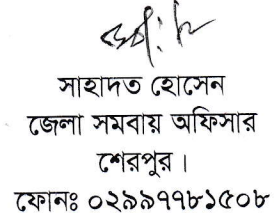 সাহাদত হোসেন
জেলা সমবায় অফিসার
শেরপুর ।
ফোনঃ ০২৯৯৭৭৮১৫০৮